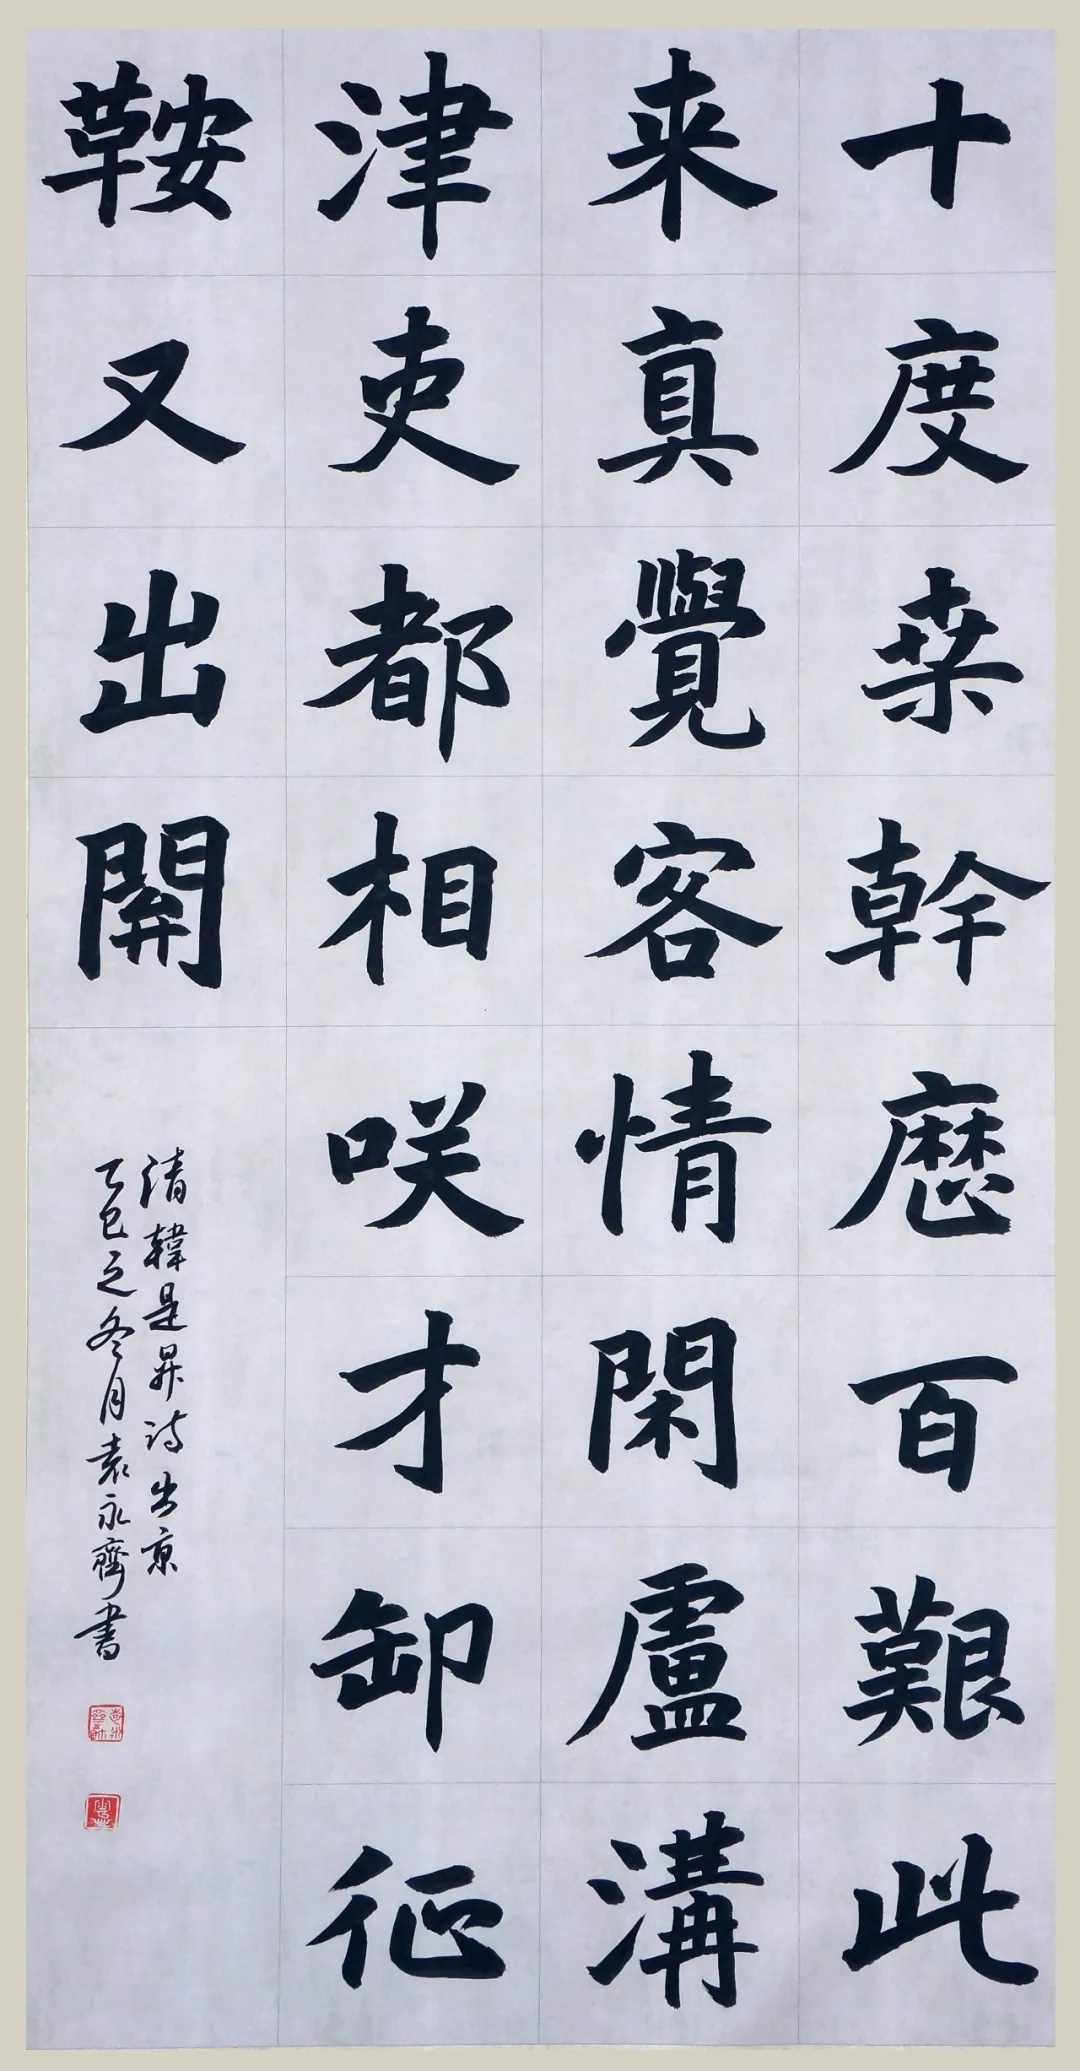 十度桒幹歷百艱此
来真覺客情閑盧溝
津吏都相咲才卸征
鞍又出關
清韓是昇詩出京
乙巳之冬月袁永齊書